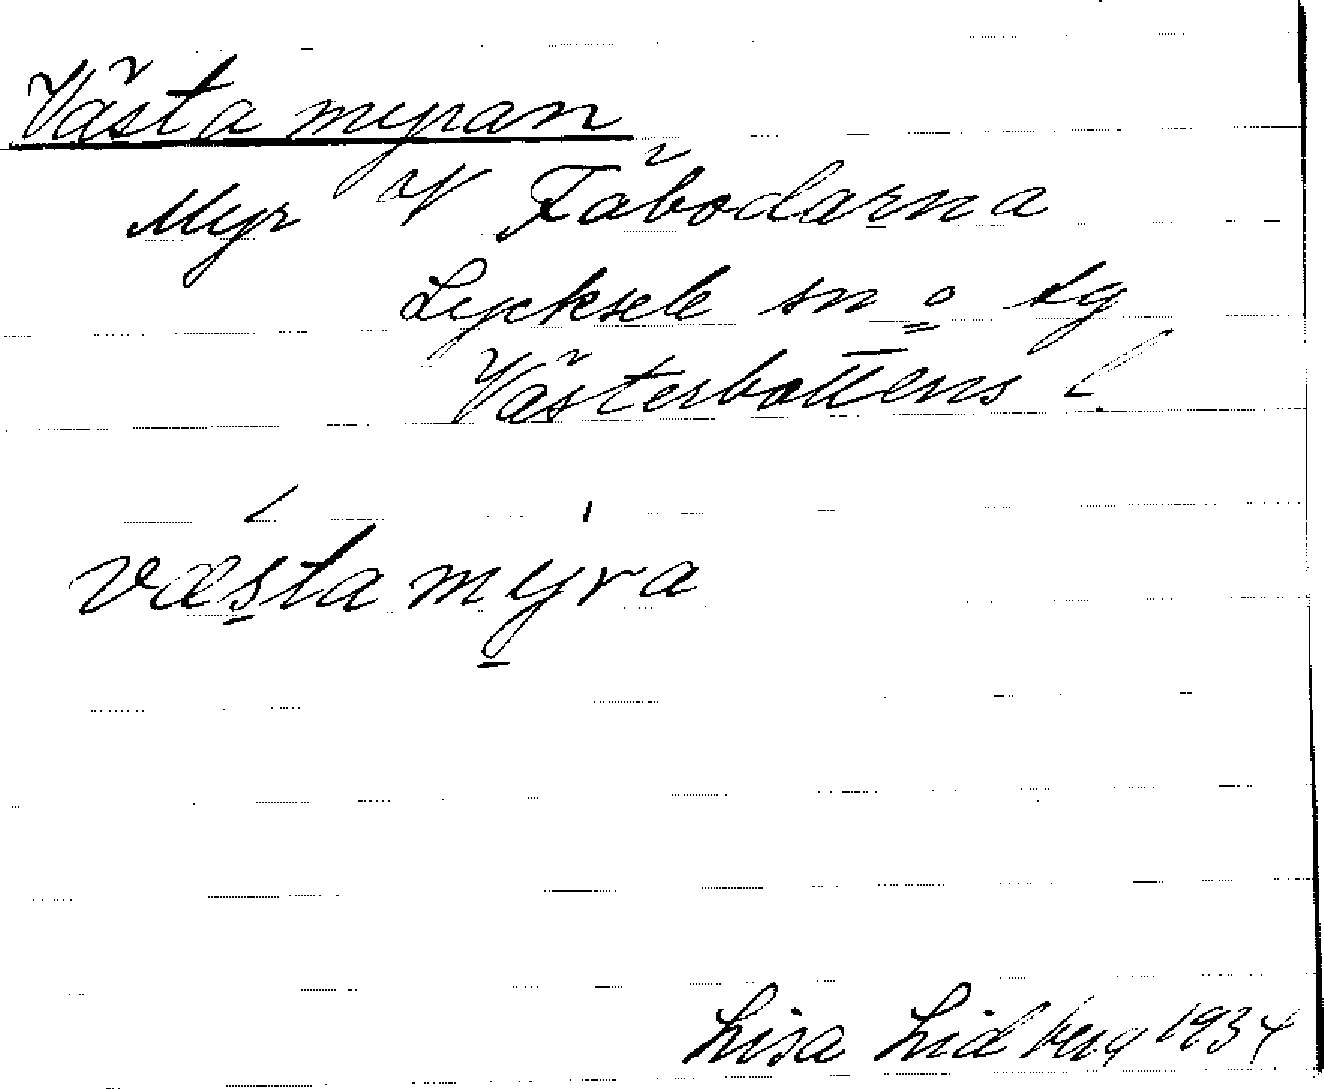 Västa myran
Myr V Fäbodarna
Lycksele sn o tg
Västerbottens l.
væsta myra
Lisa Lidberg 1934